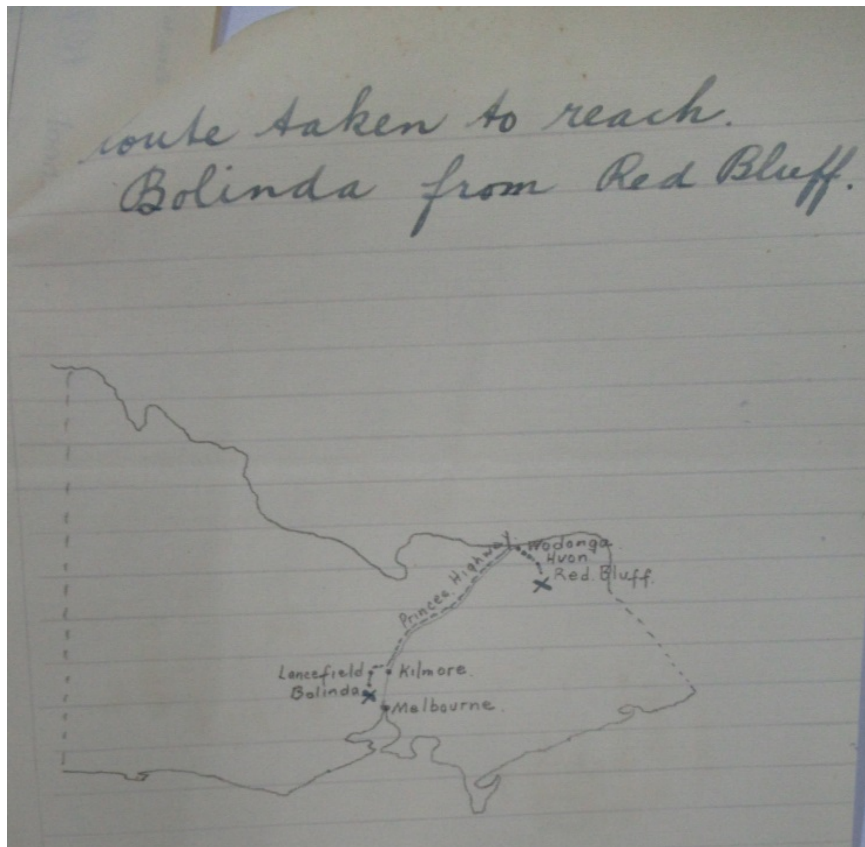 route taken to reach.
Bolinda from Red Bluff.
Wodonga.
Huon
Red. Bluff.
Princes. Highway
Lancefield
Kilmore.
Bolinda
Melbourne.